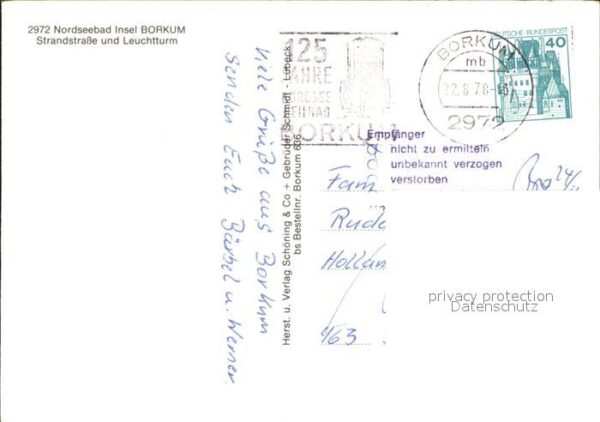 2972 Nordseebad Insel BORKUM
Strandstraße und Leuchtturm
Viele Grüße aus Borkum
senden Euch Bärbel u. Werner.
Herst. u. Verlag Schöning & Co + Gebrüder Schmidt - Lübeck
bs Bestellnr. Borkum 636
125
JAHRE
NORDSEE
HEILBAD
BORKUM
BORKUM
mb
22.8.78
2972
DEUTSCHE BUNDESPOST
40
Empfänger
nicht zu ermitteln
unbekannt verzogen
verstorben
Fam
Rüde
Hollan
463
privacy protection
Datenschutz